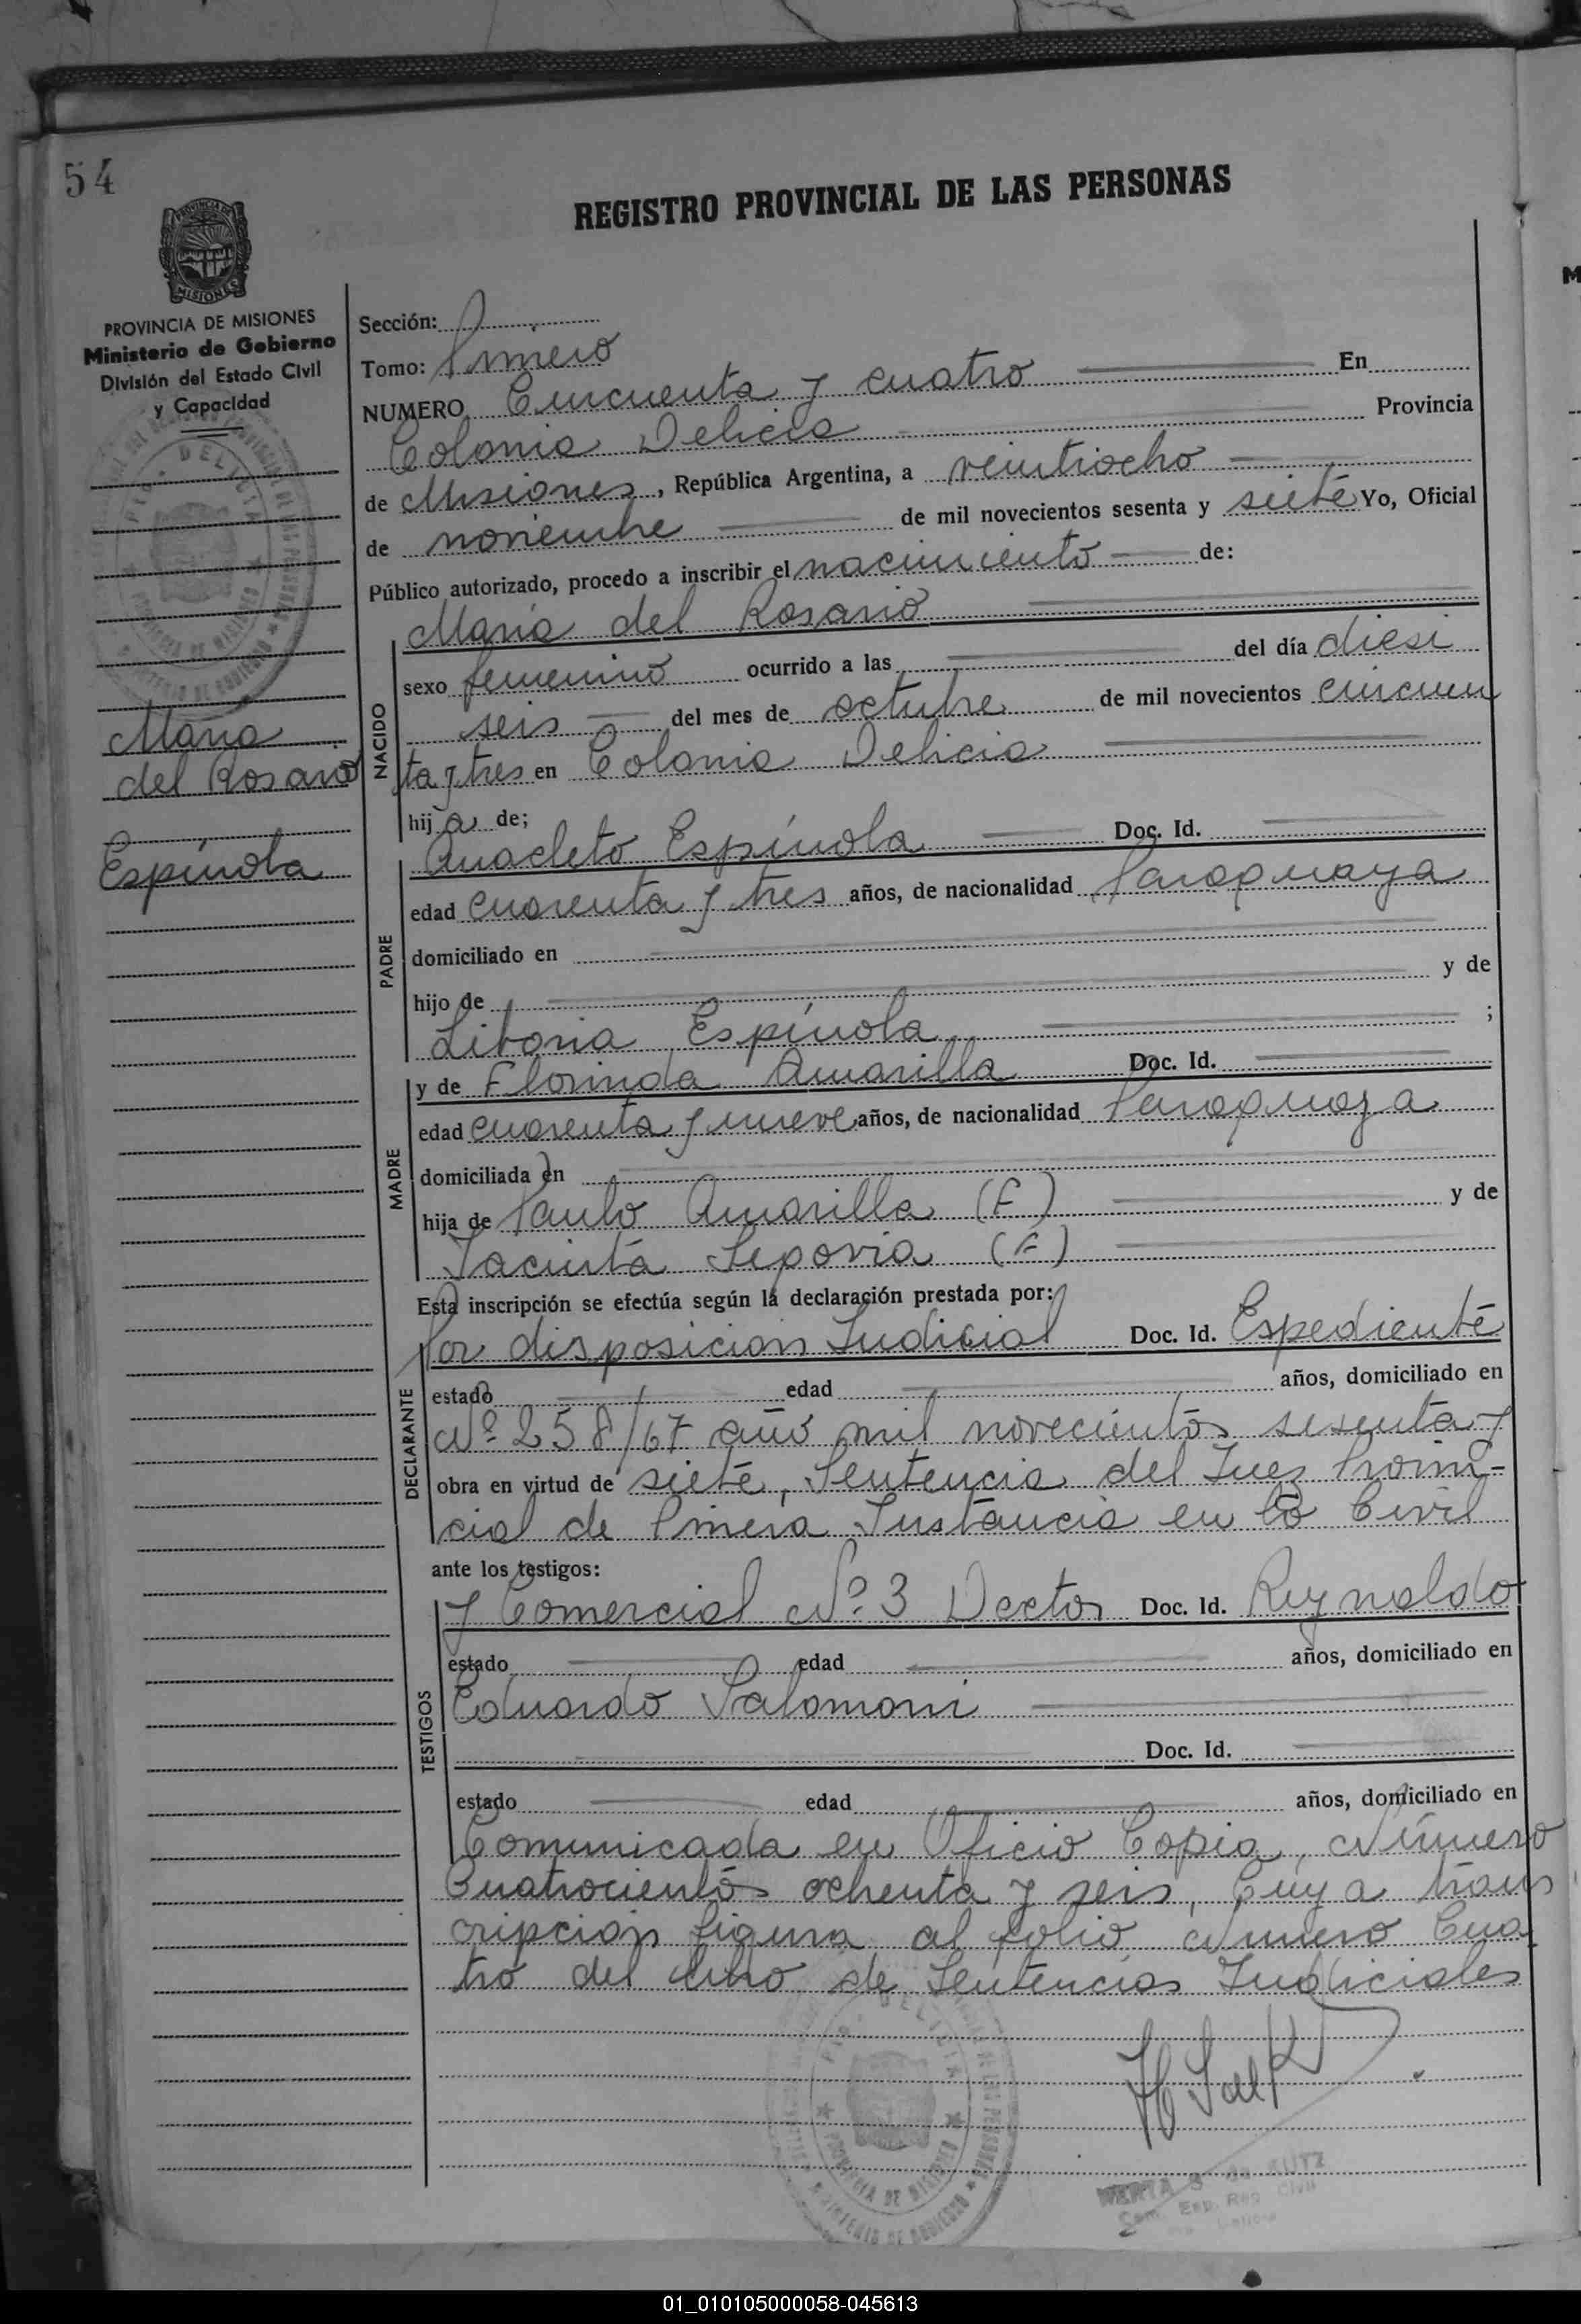 54
REGISTRO PROVINCIAL DE LAS PERSONAS
PROVINCIA DE
MISIONES
PROVINCIA DE MISIONES
Ministerio de Gobierno
División del Estado Civil
y Capacidad
María
del Rosario
Espínola
Sección:
Tomo: Primero
NUMERO Cincuenta y cuatro En
Colonia Delicia Provincia
de Misiones, República Argentina, a veintiocho
de noviembre de mil novecientos sesenta y siete Yo, Oficial
Público autorizado, procedo a inscribir el nacimiento de:
NACIDO
María del Rosario
sexo femenino ocurrido a las del día diesi
seis del mes de octubre de mil novecientos cincuen
ta y tres en Colonia Delicia
hija de;
PADRE
Anacleto Espínola Doc. Id.
edad cuarenta y tres años, de nacionalidad Paraguaya
domiciliado en
hijo de y de
Liboria Espínola ;
MADRE
y de Florinda Amarilla Doc. Id.
edad cuarenta y nueve años, de nacionalidad Paraguaya
domiciliada en
hija de Paulo Amarilla (F) y de
Jacinta Segovia (F)
Esta inscripción se efectúa según la declaración prestada por:
DECLARANTE
Por disposicion Judicial Doc. Id. Espediente
estado edad años, domiciliado en
Nº 258/67 año mil novecientos sesenta y
obra en virtud de siete, Sentencia del Juez Provin-
cial de Primera Instancia en lo Civil
ante los testigos:
TESTIGOS
y Comercial Nº 3 Doctor Doc. Id. Reynaldo
estado edad años, domiciliado en
Eduardo Salomoni
Doc. Id.
estado edad años, domiciliado en
Comunicada en Oficio Copia, Número
Cuatrocientos ochenta y seis, Cuya trans
cripcion figura al folio Número Cua
tro del libro de Sentencias Judiciales
01_010105000058-045613